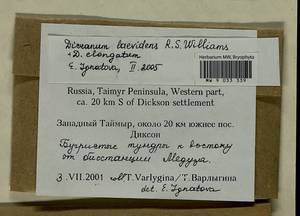 Dicranum laevidens R.S. Williams
+ D. elongatum
E. Ignatova, II. 2005
Herbarium MW, Bryophyta
MW 9 033 339
Russia, Taimyr Peninsula, Western part,
ca. 20 km S of Dickson settlement
Западный Таймыр, около 20 км южнее пос.
Диксон
Бугристые тундры к востоку
от биостанции Медуза.
3. VII.2001 coll T. Varlygina / Т. Варлыгина
det. E. Ignatova